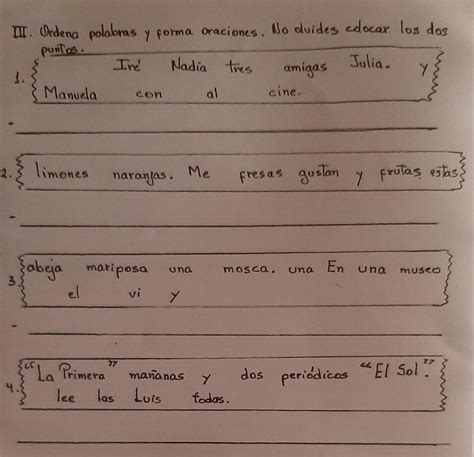 III. Ordena palabras y forma oraciones. No olvides colocar los dos
puntos.
1. Iré Nadia tres amigas Julia. y
Manuela con al cine.
2. limones naranjas. Me fresas gustan y frutas estas
3. abeja mariposa una mosca. una En una museo
el vi y
4. "La Primera" mañanas y dos periódicos "El Sol".
lee las Luis todas.